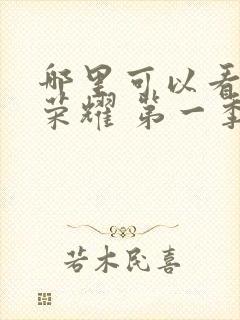 哪里可以看
荣耀 第一季
若木民喜